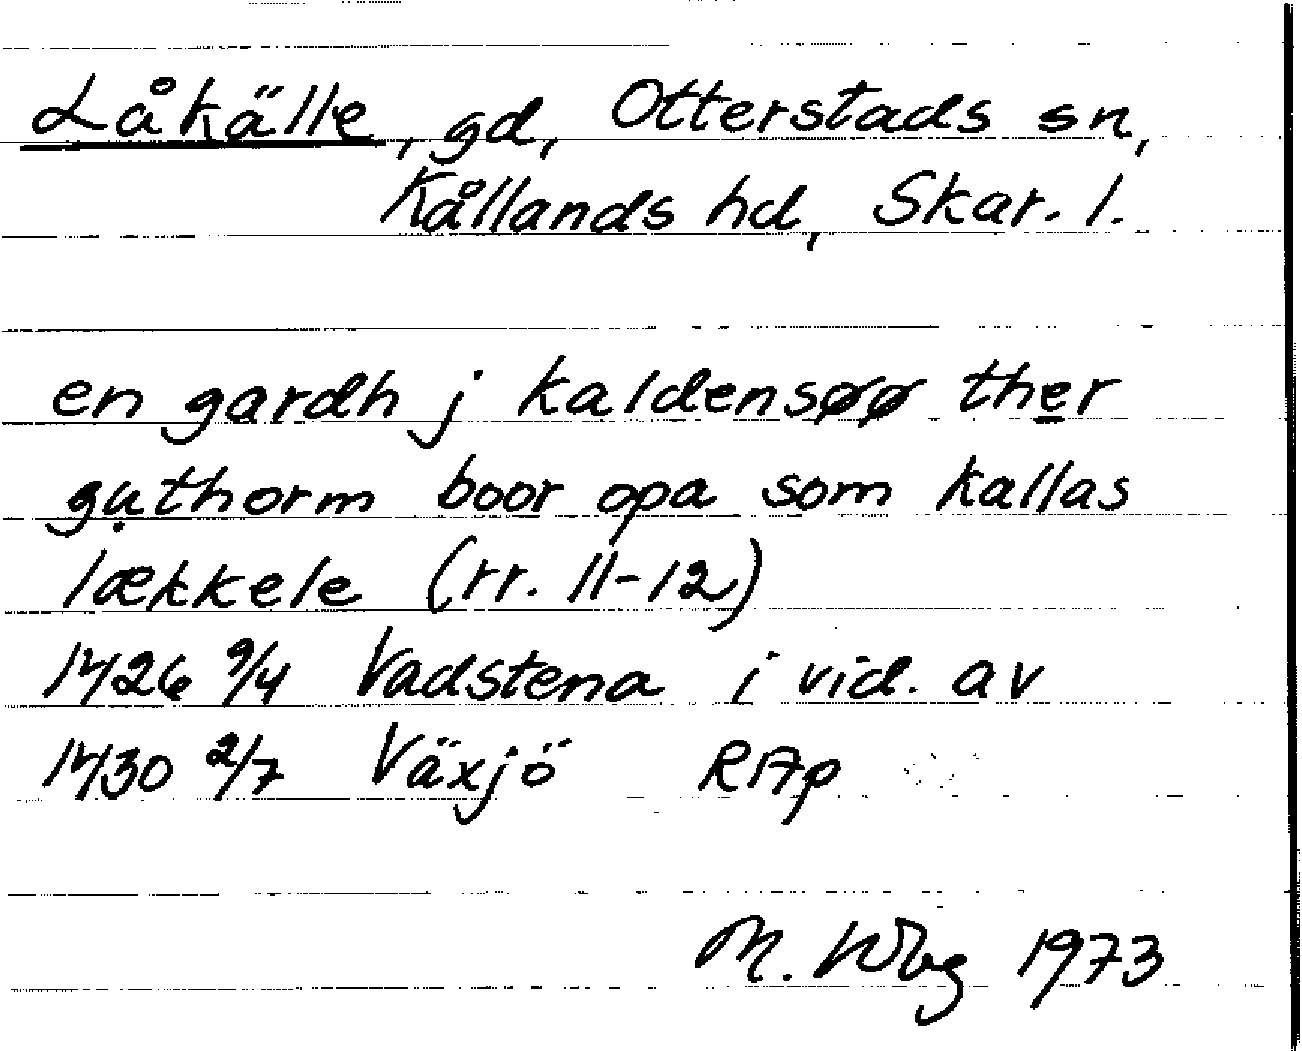 Låkälle, gd, Otterstads sn,
Kållands hd, Skar. l.
en gardh j kaldensøø ther
gụthorm boor opa som kallas
lækkele (rr. 11-12)
1426 9/4 Vadstena i vid. av
1430 2/7 Växjö RAp
M. Wbg 1973